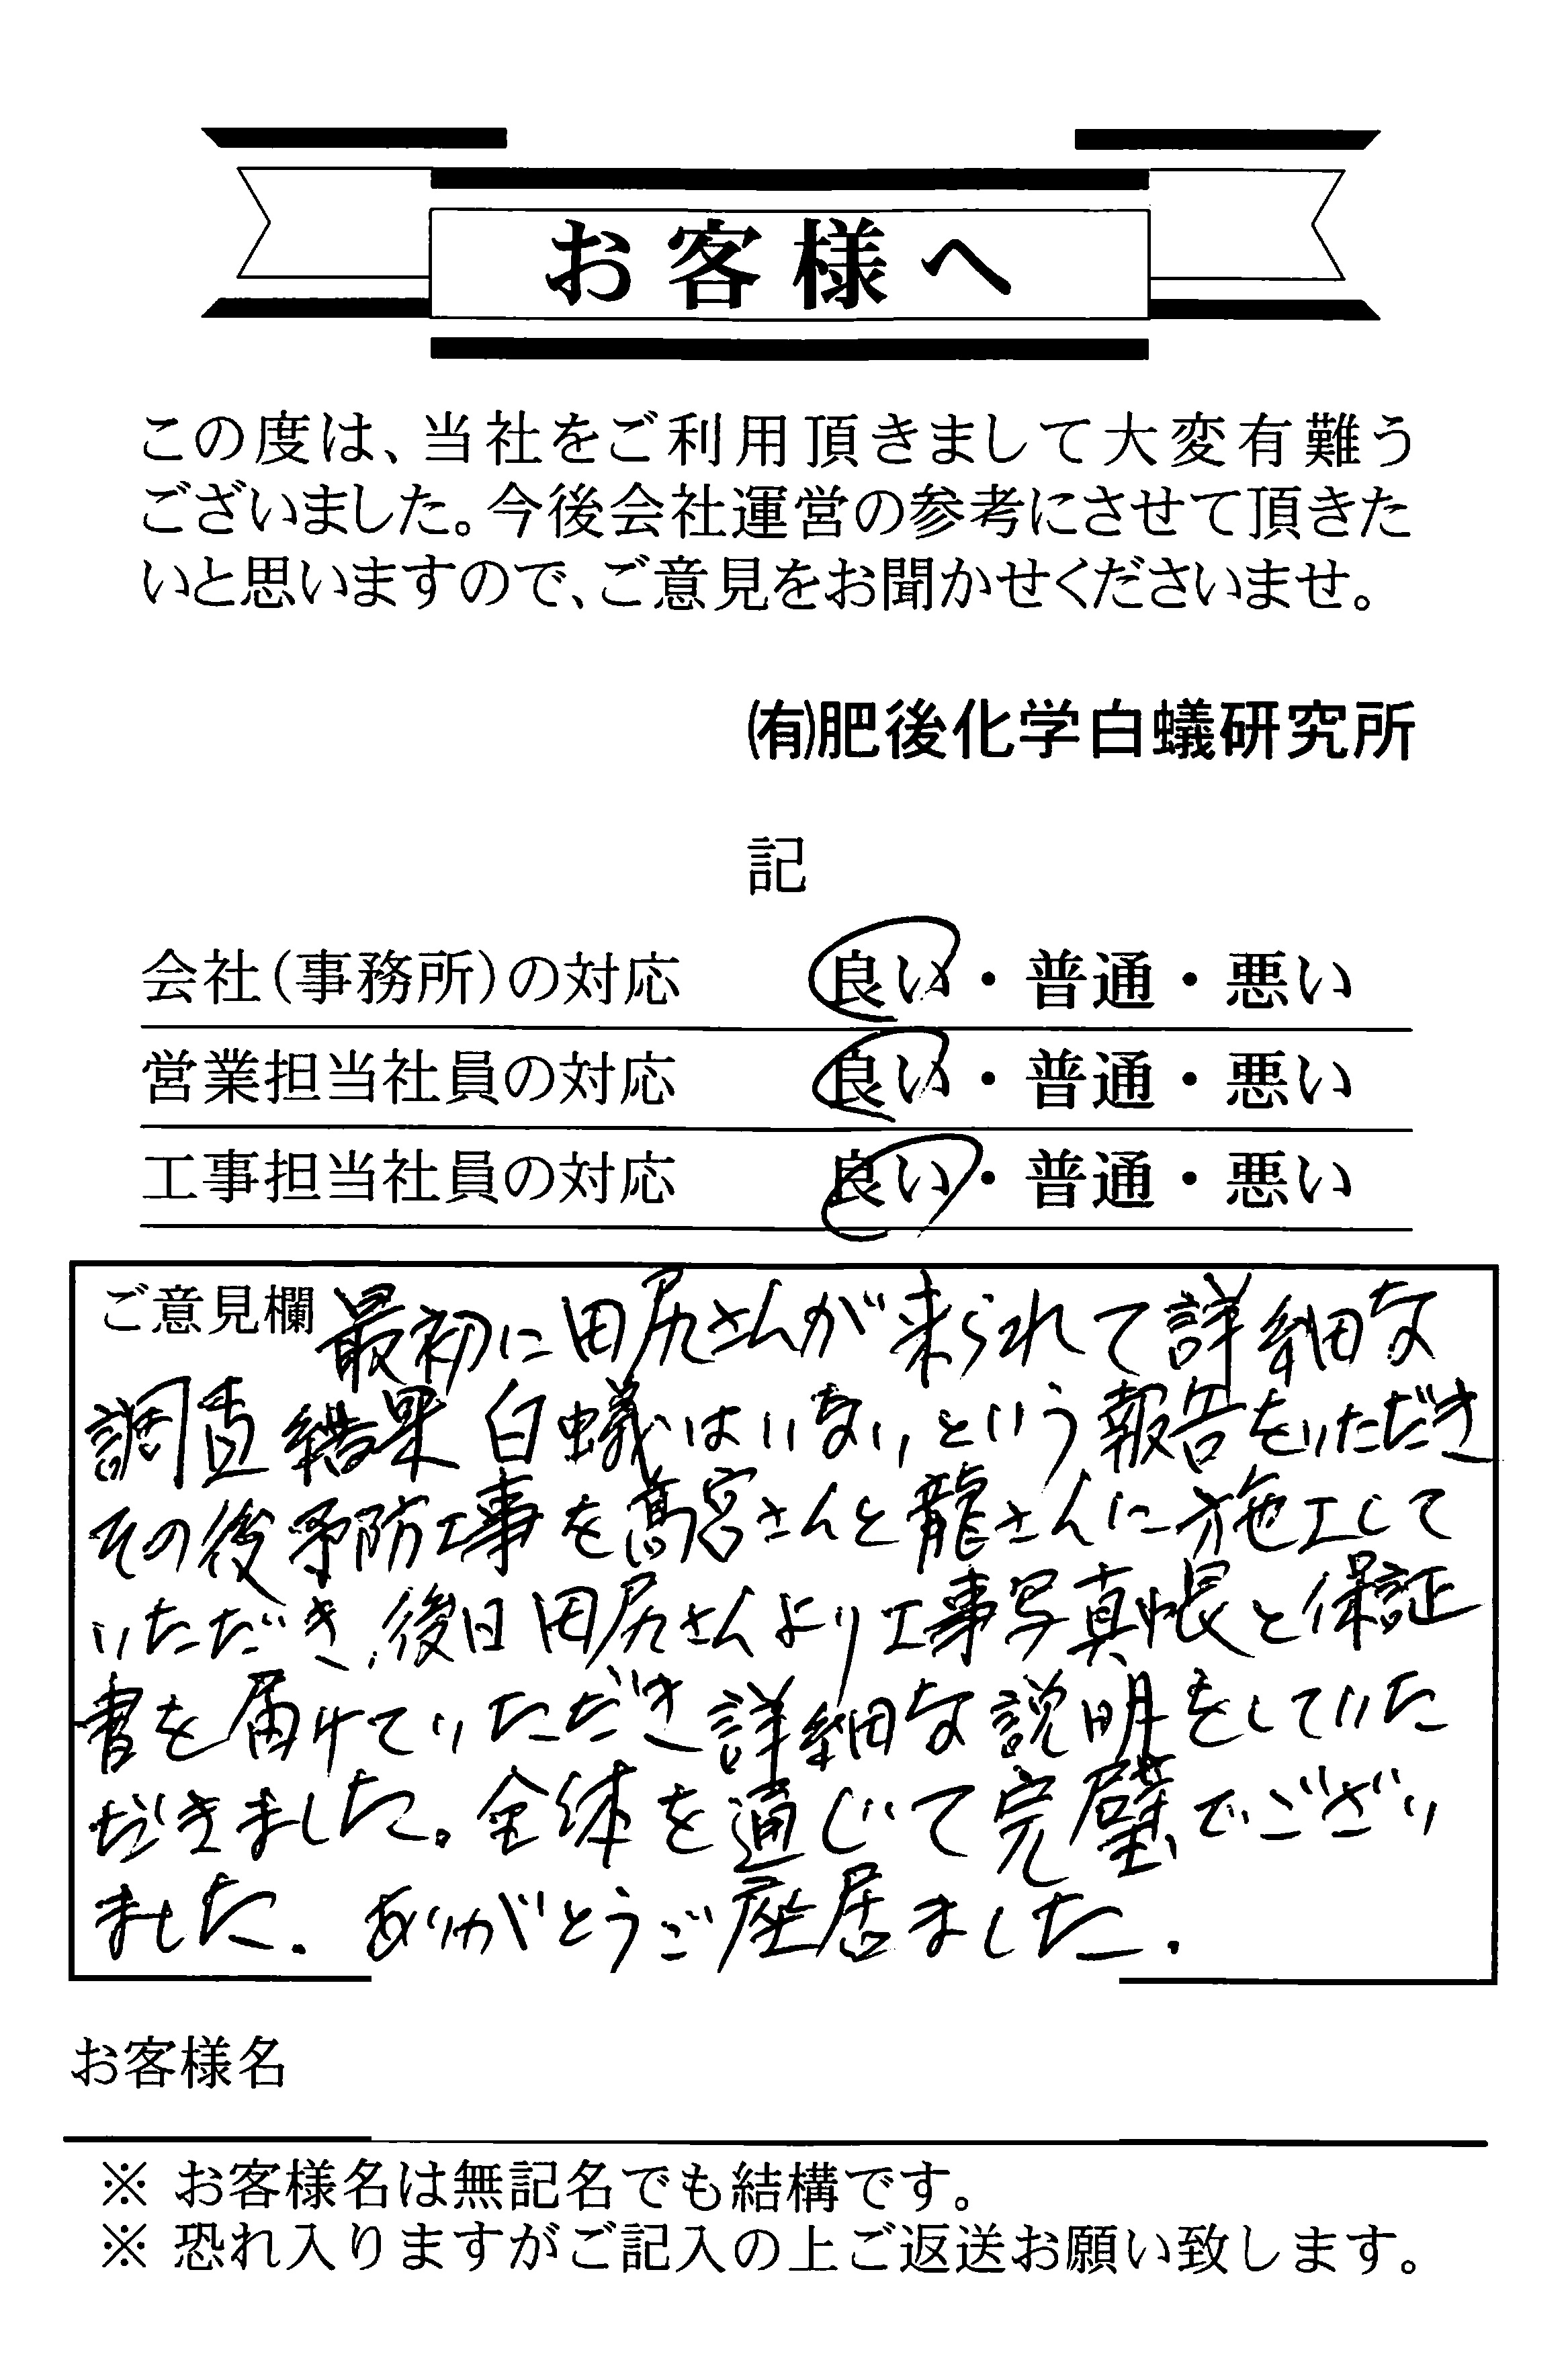 お客様へ
この度は、当社をご利用頂きまして大変有難う
ございました。今後会社運営の参考にさせて頂きた
いと思いますので、ご意見をお聞かせくださいませ。
㈲肥後化学白蟻研究所
記
会社(事務所)の対応 良い・普通・悪い
営業担当社員の対応 良い・普通・悪い
工事担当社員の対応 良い・普通・悪い
ご意見欄 最初に田尻さんが来られて詳細な
調査結果白蟻はいないという報告をいただき
その後予防工事を髙宮さんと龍さんに施工して
いただき、後日田尻さんより工事写真帳と保証
書を届けていただき詳細な説明をしていた
だきました。全体を通じて完璧でござい
ました。ありがとうご座居ました。
お客様名
※ お客様名は無記名でも結構です。
※ 恐れ入りますがご記入の上ご返送お願い致します。